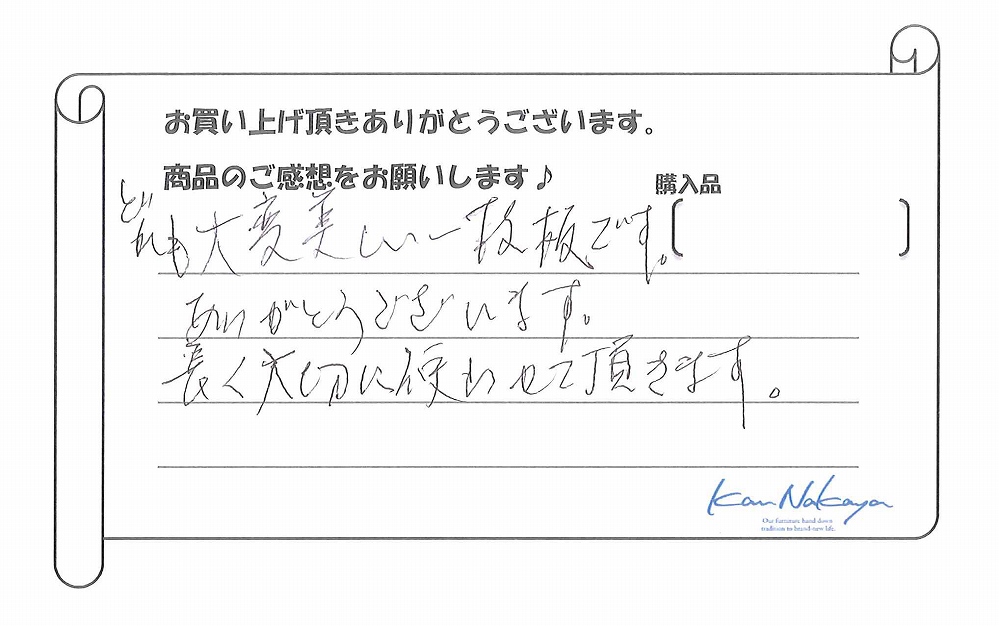 お買い上げ頂きありがとうございます。
商品のご感想をお願いします♪
購入品
〔 〕
どれも大変美しい一枚板です。
ありがとうございます。
長く大切に使わせて頂きます。
Kan Nakaya
Our furniture hand down
tradition to brand-new life.